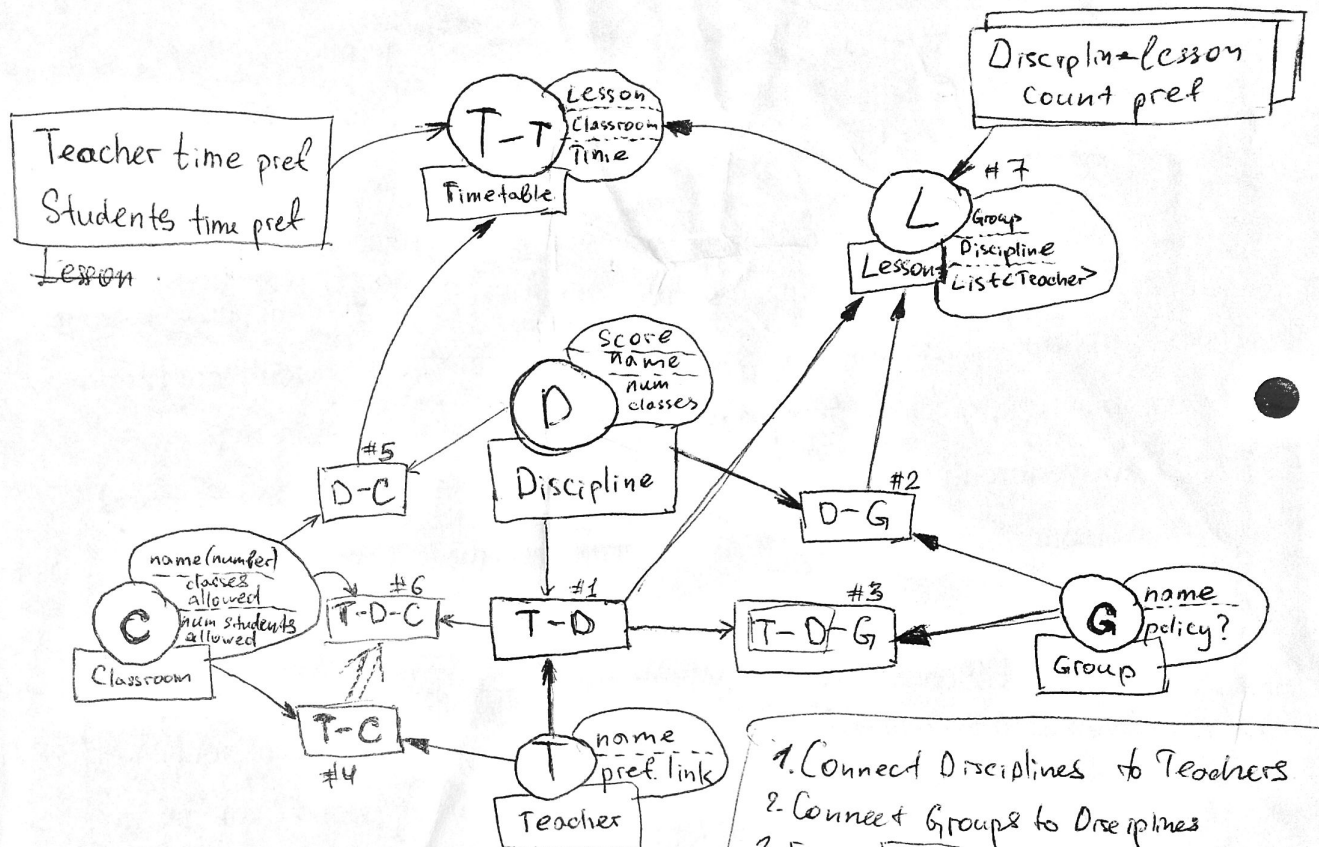 Discipline lesson
count pref
Teacher time pref
Students time pref
Lesson
T-T
Lesson
Classroom
Time
Timetable
#7
L
Group
Discipline
List<Teacher>
Lesson
Score
name
num
classes
D
Discipline
#5
D-C
#2
D-G
name (number)
classes
allowed
num students
allowed
C
Classroom
#6
T-D-C
#1
T-D
#3
T-D-G
name
policy?
G
Group
T-C
#4
T
name
pref. link
Teacher
1. Connect Disciplines to Teachers
2. Connect Groups to Disciplines